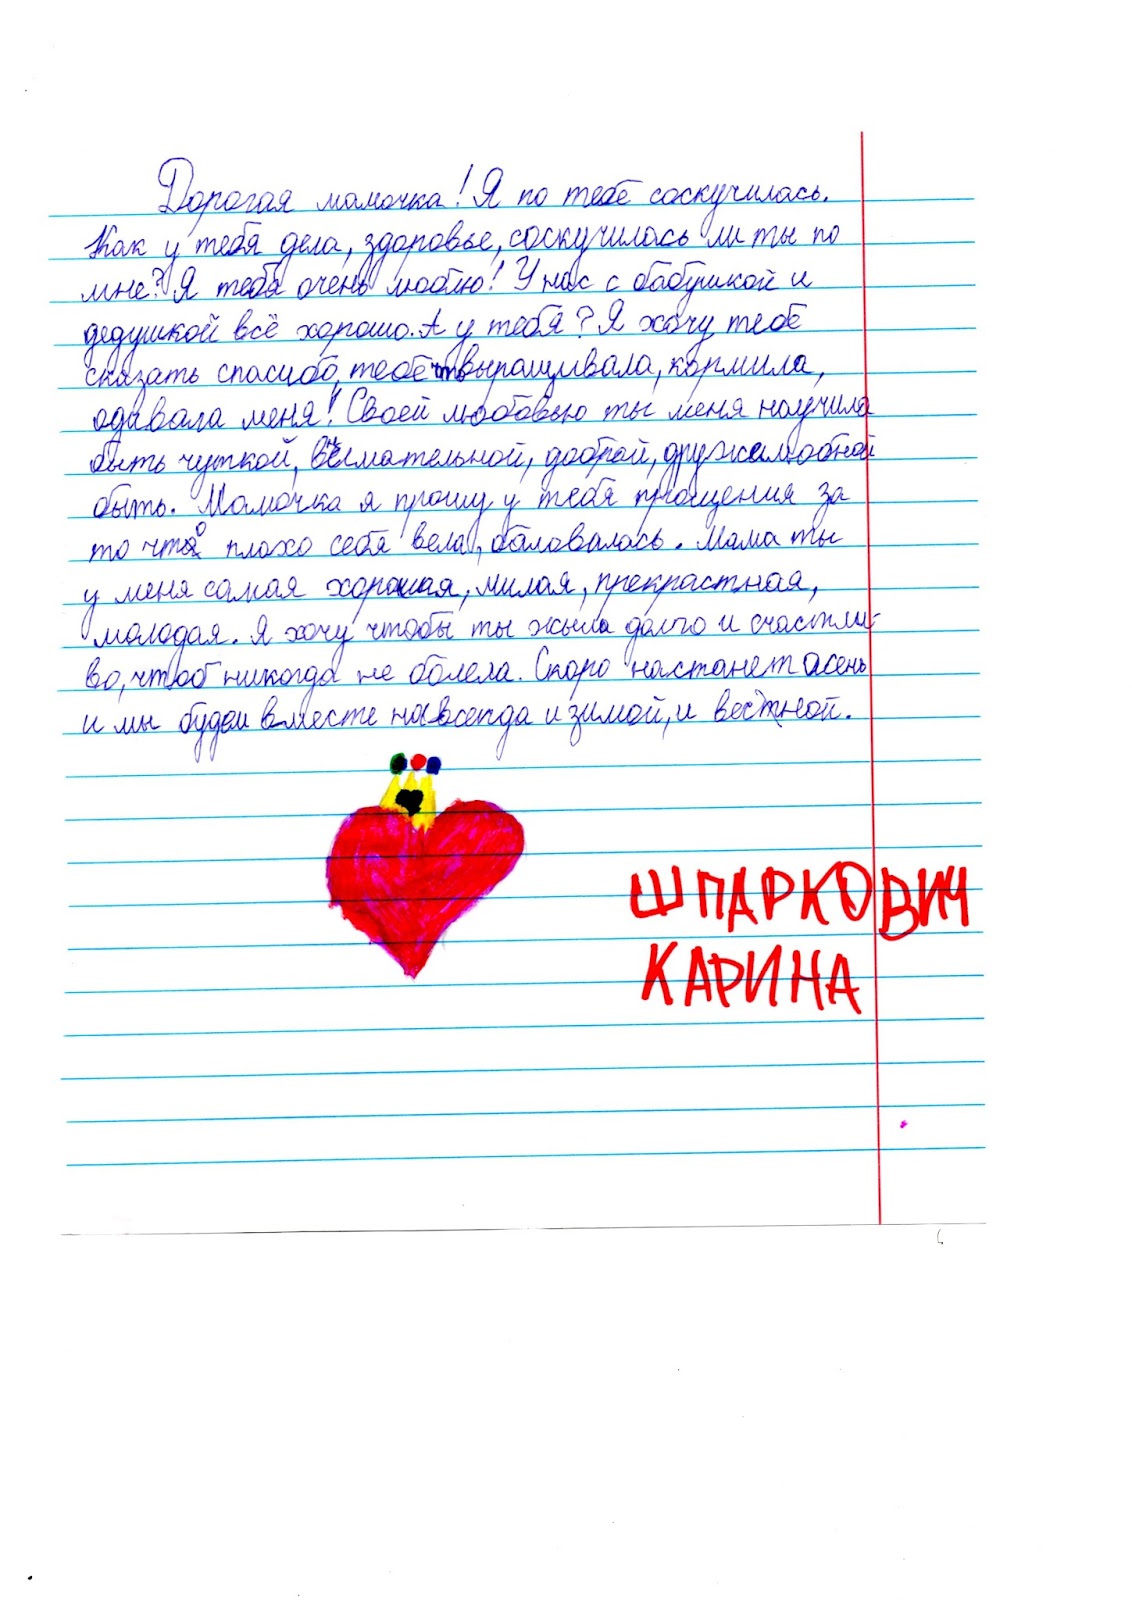 Дорогая мамочка! Я по тебе соскучилась.
Как у тебя дела, здоровье, соскучилась ли ты по
мне? Я тебя очень люблю! У нас с бабушкой и
дедушкой всё хорошо. А у тебя? Я хочу тебе
сказать спасибо, тебе что выращивала, кормила,
одивала меня! Своей любовью ты меня научила
быть чуткой, внимательной, доброй, дружилюбной
быть. Мамочка я прошу у тебя прощения за
то что плохо себя вела, баловалась. Мама ты
у меня самая хорошая, милая, прекрастная,
молодая. Я хочу чтобы ты жыла долго и счастли-
во, чтоб никогда не болела. Скоро настанет осень
и мы будем вместе навсегда и зимой, и вестной.
ШПАРКОВИЧ
КАРИНА